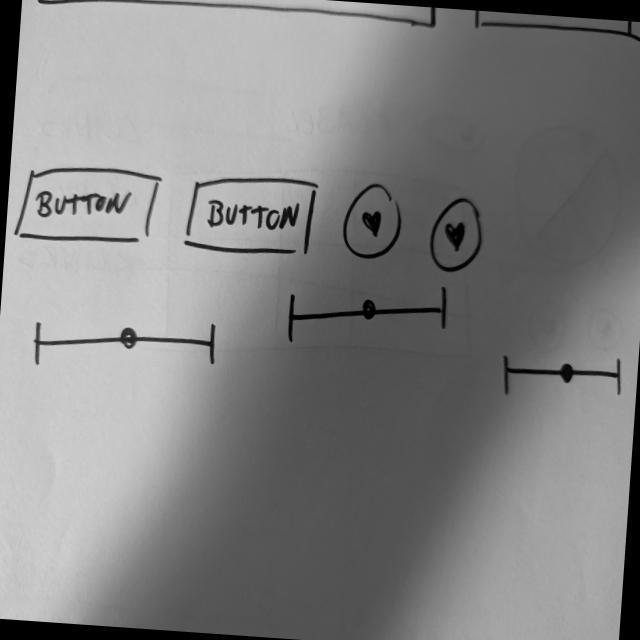 BUTTON BUTTON